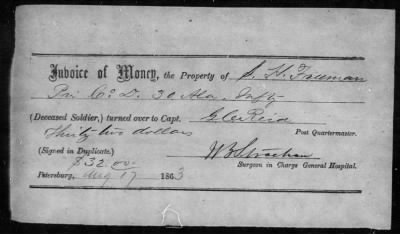 Invoice of Money, the Property of S. H. Freeman
Pri Co. D. 30 Ala. Infty
(Deceased Soldier,) turned over to Capt. Geo Reid
Thirty two dollars Post Quartermaster.
(Signed in Duplicate.) W B Strachan
$32.00 Surgeon in Charge General Hospital.
Petersburg, Aug 17 1863